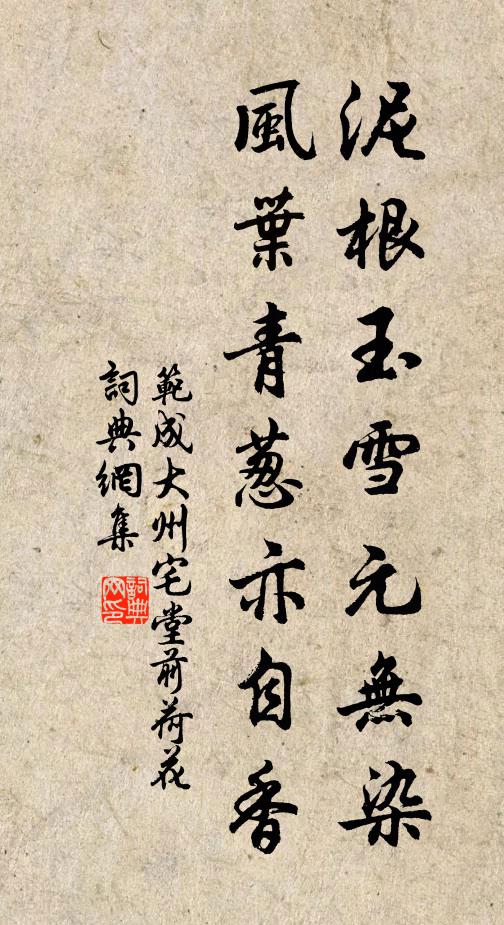 泥根玉雪元無染
風葉青葱亦自香
範成大州宅堂前荷花
詞典網集
詞典網印